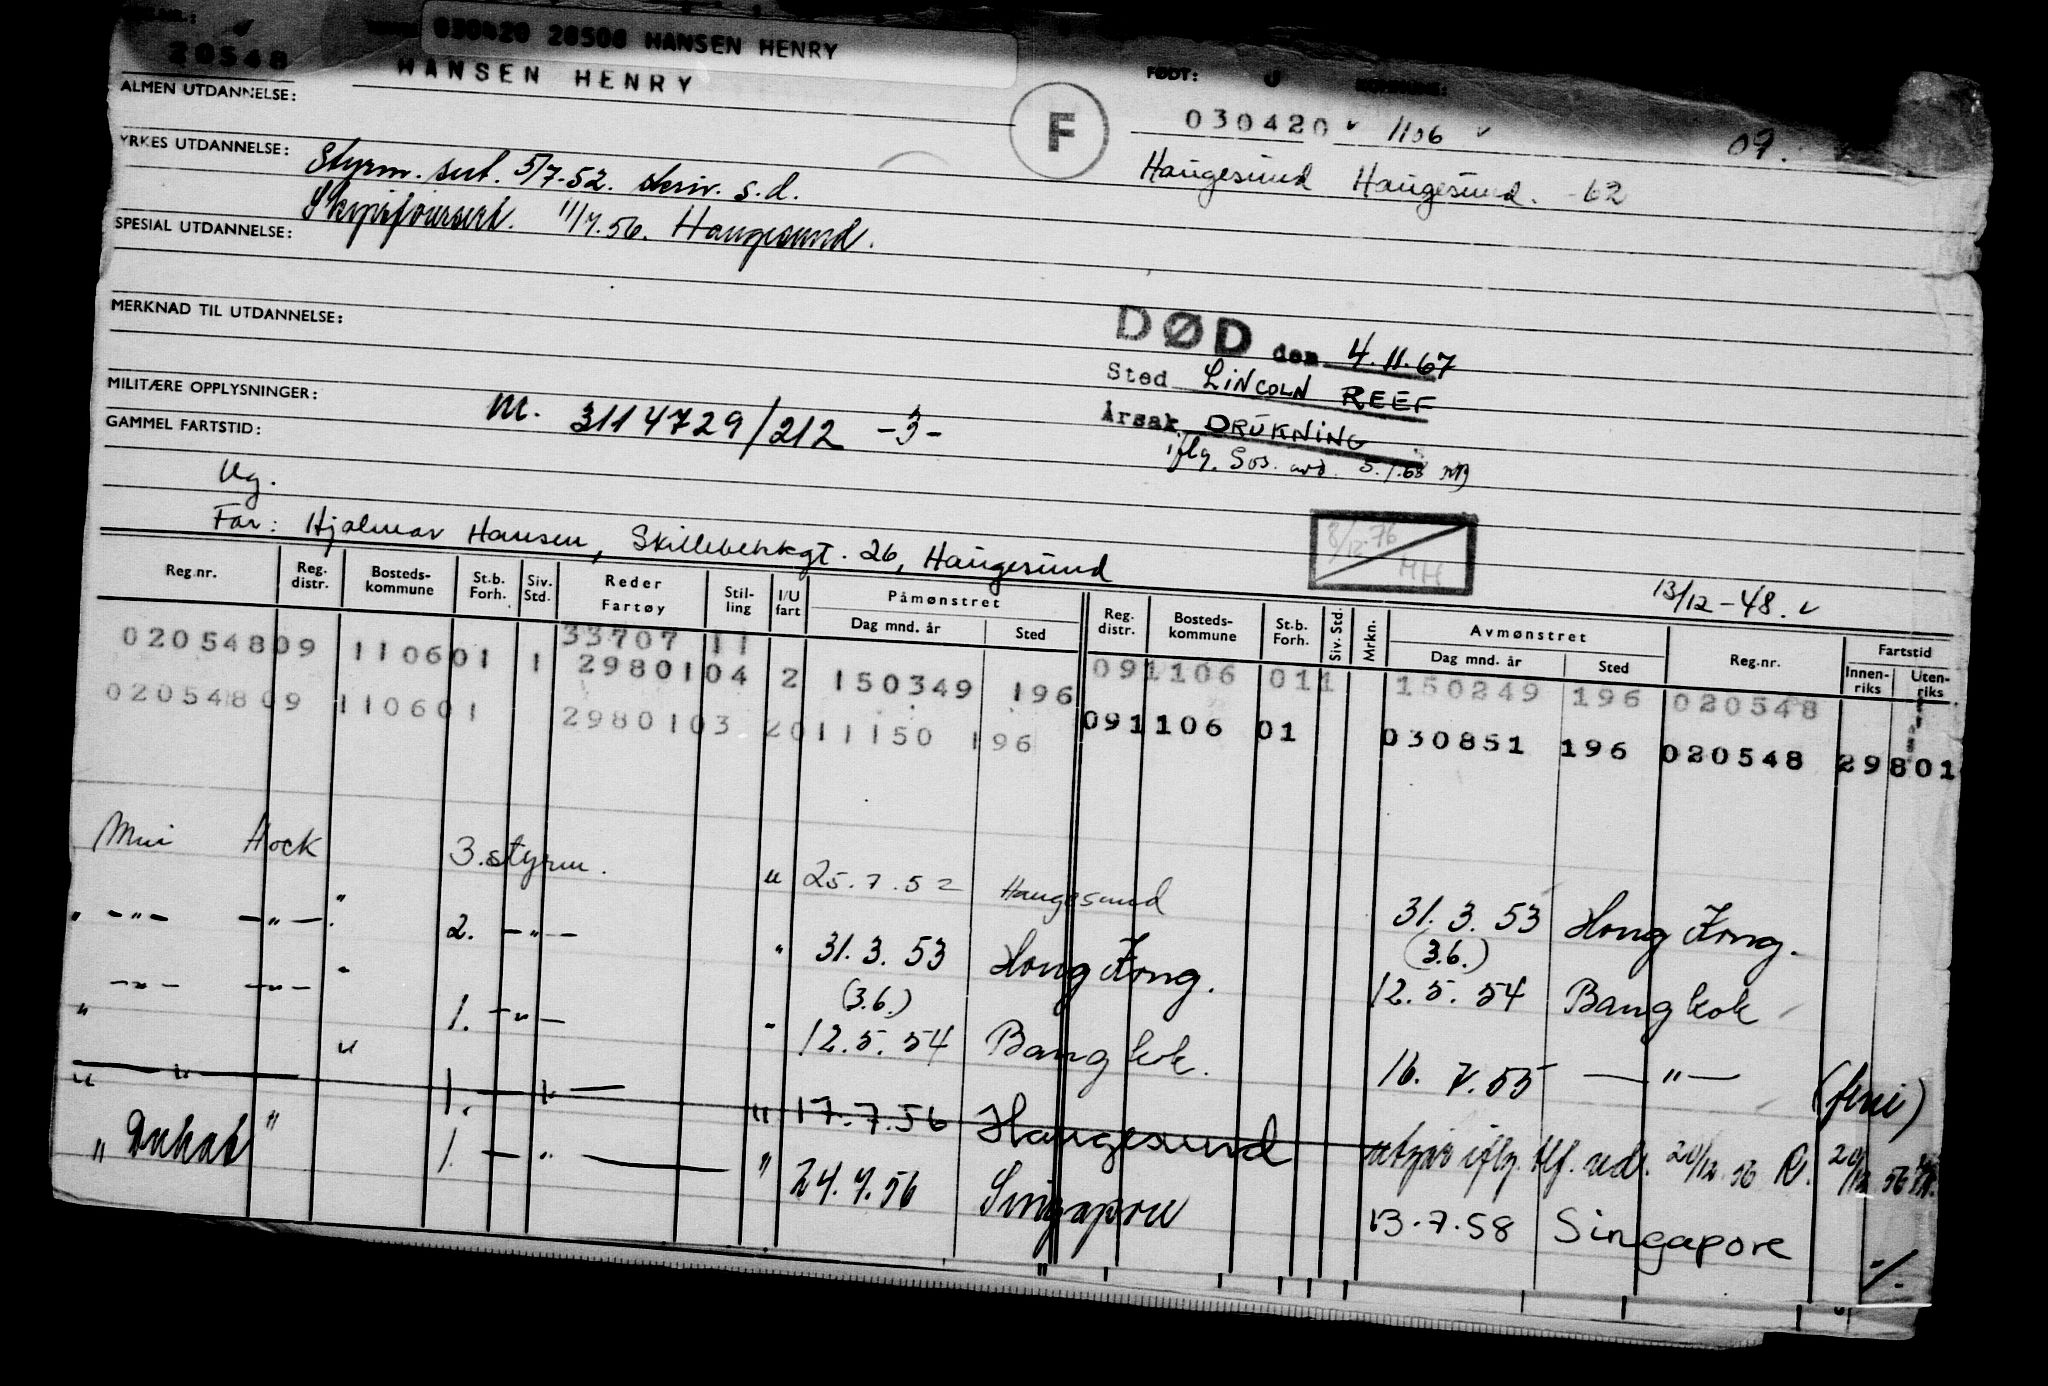 030420 20500 HANSEN HENRY
20548
HANSEN HENRY
FØDT:
ALMEN UTDANNELSE:
F
030420 1106 09.
YRKES UTDANNELSE:
Styrm. sert. 5/7.52. skriv. s.d.
Haugesund Haugesund. -62
11/7.56. Haugesund.
SPESIAL UTDANNELSE:
MERKNAD TIL UTDANNELSE:
DØD den 4.11.67
Sted LINCOLN REEF
MILITÆRE OPPLYSNINGER:
M. 3114729/212 -3-
Årsak DRUKNING
GAMMEL FARTSTID:
iflg. Sos. avd. 5.1.68
Ug.
Far: Hjalmar Hansen, Skillebekkgt. 26, Haugesund
8/12-76
MH
13/12-48.
Reg.nr. Reg. distr. Bosteds-kommune St.b. Forh. Siv. Std. Reder Fartøy Stil-ling I/U fart Påmønstret Dag mnd. år Sted Reg. distr. Bosteds-kommune St.b. Forh. Siv. Std. Mrkn. Avmønstret Dag mnd. år Sted Reg.nr. Fartstid Innen-riks Uten-riks
33707 11
020548 09 1106 01 1 29801 04 2 150349 196 09 1106 01 1 150249 196 020548
020548 09 1106 01 29801 03 2 011150 196 09 1106 01 030851 196 020548 29801
Hock 3. styrm. " 25.7.52 Haugesund 31.3.53 Hong Kong.
" -"- -"- " 2. -"- " 31.3.53 Hong Kong. (3.6.) 12.5.54 Bangkok
-"- -"- " 1. -"- " (3.6.) 12.5.54 Bangkok. 16.7.55 -"-
" " " 1. -"- " 17.7.56 Haugesund utgår iflg. tlf. red. 20/12.56 R. 20/12 56
" " 1. -"- " 24.7.56 Singapore 13.7.58 Singapore